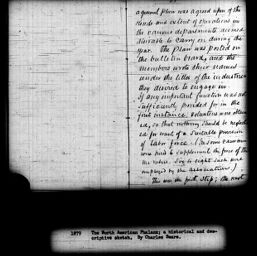 a general plan was agreed upon of the
kinds and extent of operations in
the various departments deemed
desirable to carry on during the
year. The plan was posted on
the bulletin board, and the
members wrote their names
under the titles of the industries
they desired to engage in.
If any important function was not
sufficiently provided for in the
first instance, volunteers were
ed, so that nothing should be neglect
ed for want of a suitable provision
of labor force. (
were hired to supplement the force of the
employed by the Association.)
This was the first step; the next
1879 The North American Phalanx; a historical and des-
criptive sketch. By Charles Sears.